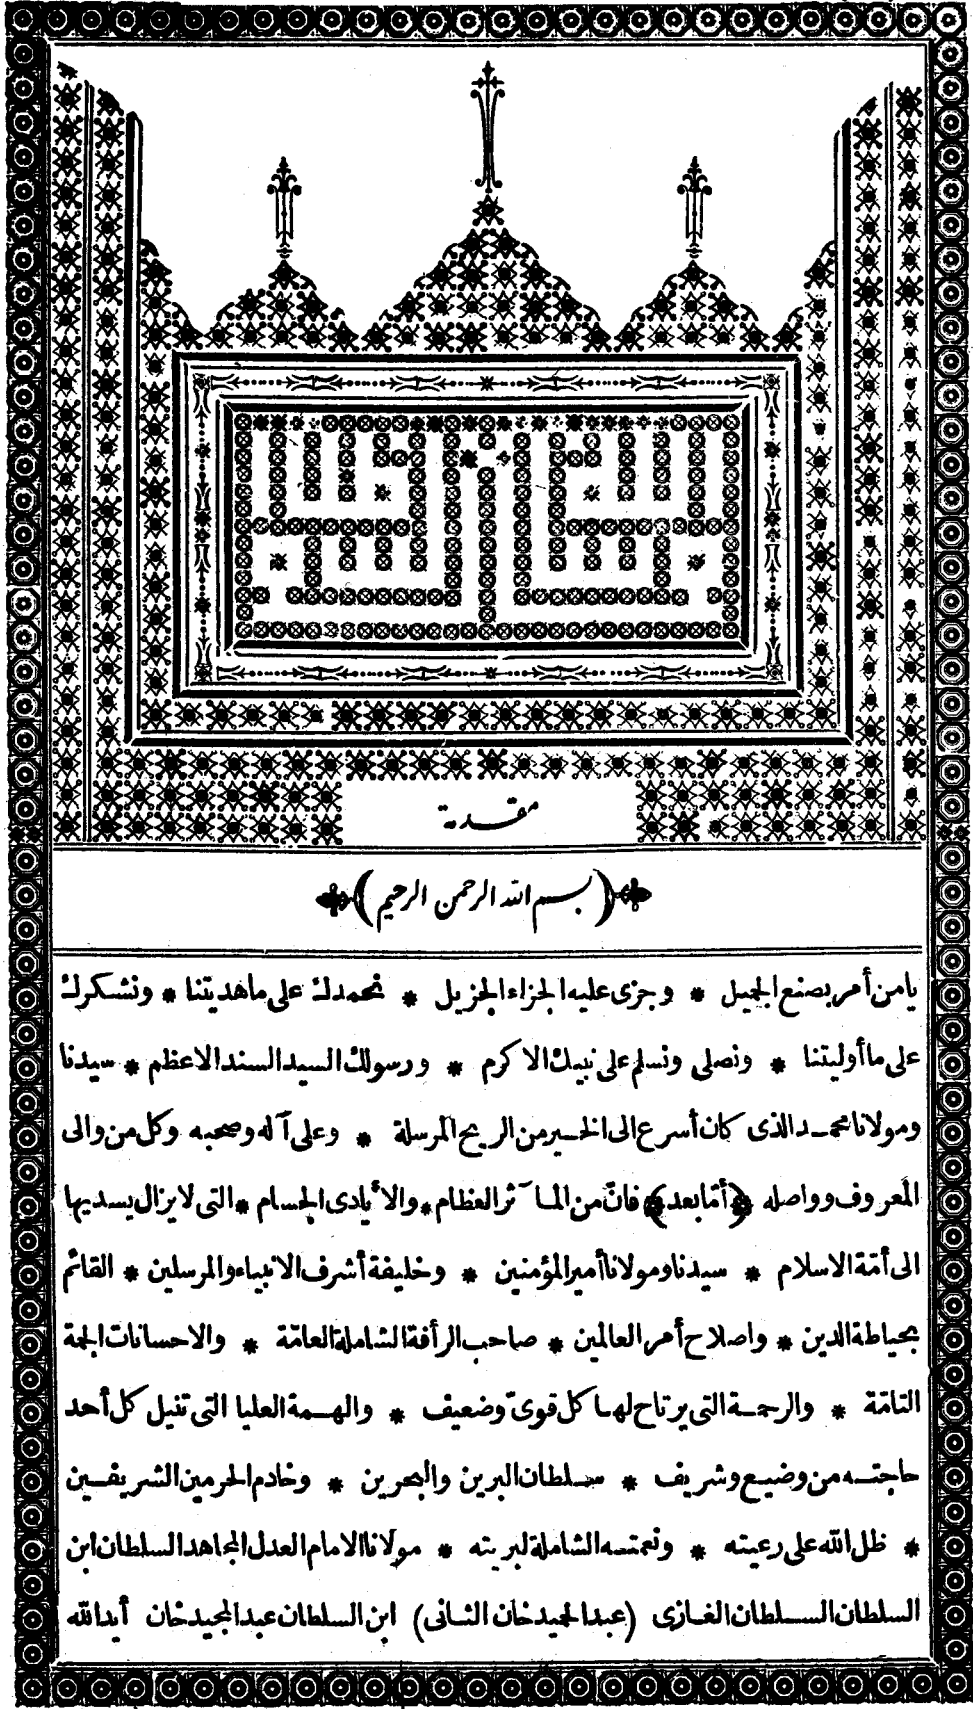 مقدمة
﴿بسم الله الرحمن الرحيم﴾
يامن أمر بصنع الجميل * وجزى عليه الجزاء الجزيل * نحمدك على ماهديتنا * ونشكرك
على ما أوليتنا * ونصلى ونسلم على نبيك الاكرم * ورسولك السيد السند الاعظم * سيدنا
ومولانا محمد الذى كان أسرع الى الخير من الريح المرسلة * وعلى آله وصحبه وكل من والى
المعروف وواصله ﴿أمّا بعد﴾ فانّ من المآثر العظام * والأيادى الجسام * التى لايزال يسديها
الى أمّة الاسلام * سيدنا ومولانا أمير المؤمنين * وخليفة أشرف الانبياء والمرسلين * القائم
بحياطة الدين * واصلاح أمر العالمين * صاحب الرأفة الشاملة العامّة * والاحسانات الجمة
التامّة * والرحمة التى يرتاح لها كل قوىّ وضعيف * والهمة العليا التى تنيل كل أحد
حاجته من وضيع وشريف * سلطان البرين والبحرين * وخادم الحرمين الشريفين
* ظل الله على رعيته * ونعمته الشاملة لبريته * مولانا الامام العدل المجاهد السلطان ابن
السلطان السلطان الغازى (عبد الحميد خان الثانى) ابن السلطان عبد المجيد خان أيد الله